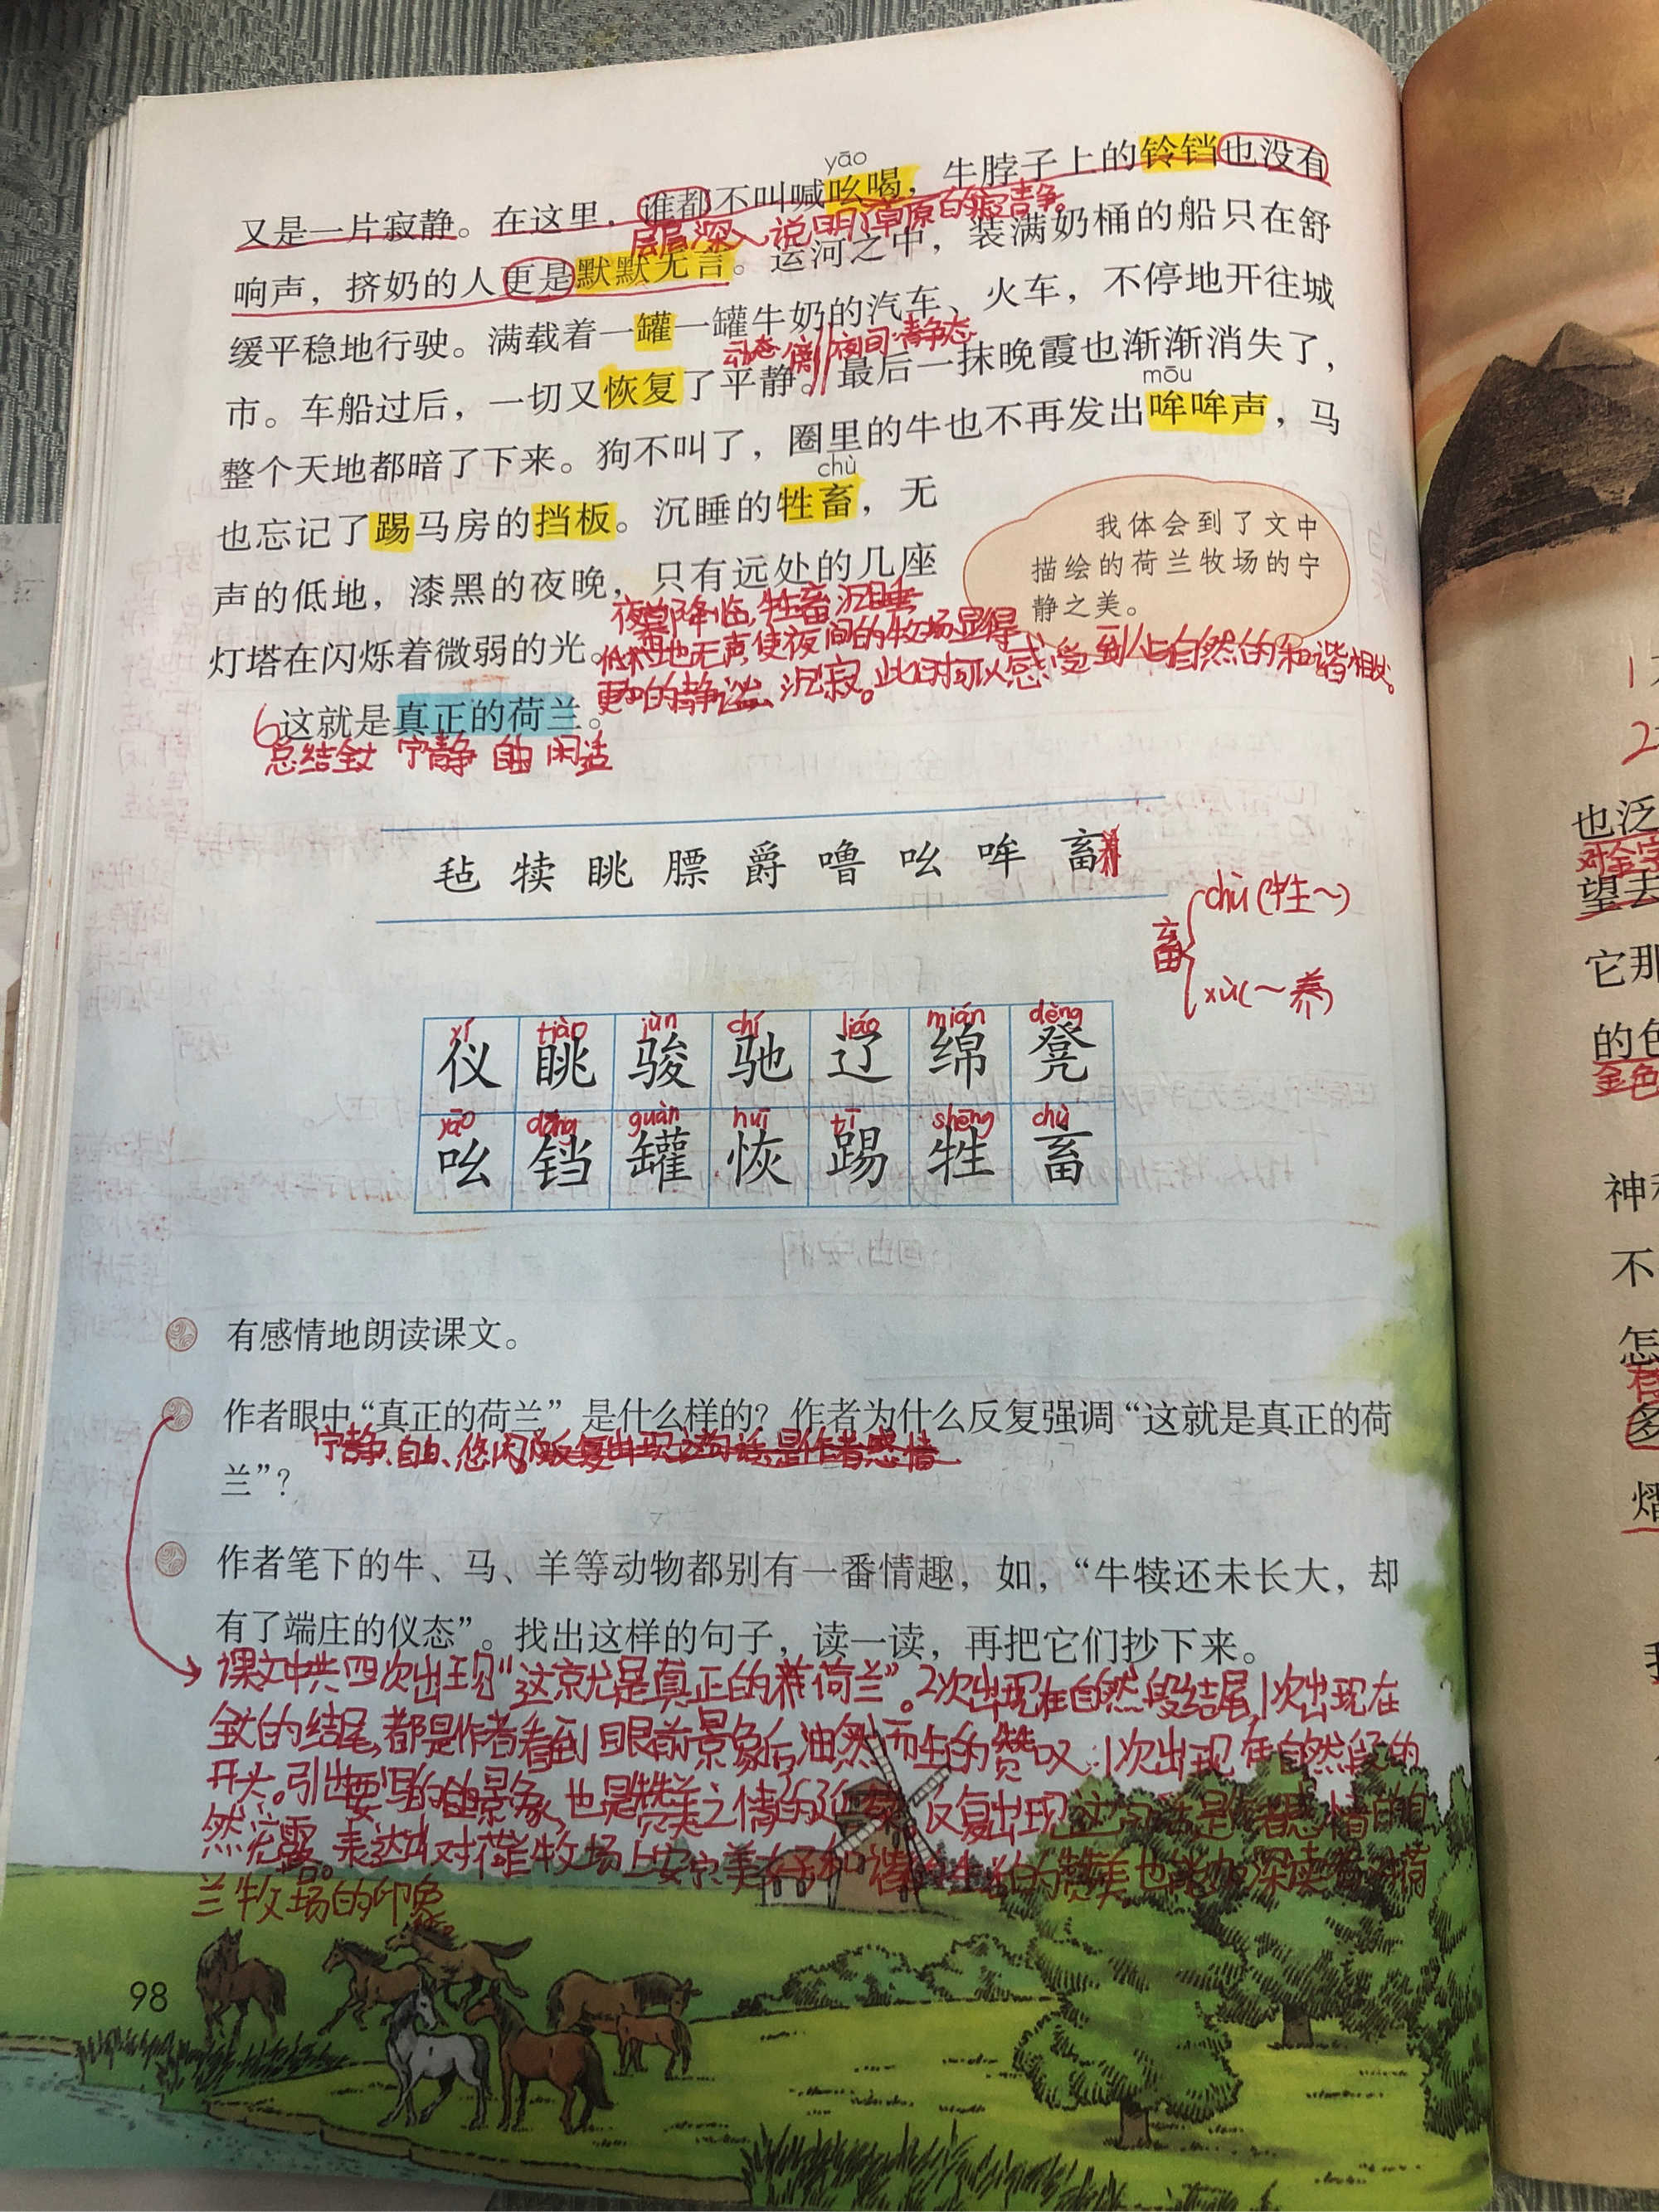 又是一片寂静。在这里，谁都不叫喊吆喝，牛脖子上的铃铛也没有
yāo
层层深入,说明了草原的寂静。
响声，挤奶的人更是默默无言。运河之中，装满奶桶的船只在舒
缓平稳地行驶。满载着一罐一罐牛奶的汽车、火车，不停地开往城
动态 夜间·静态
市。车船过后，一切又恢复了平静。最后一抹晚霞也渐渐消失了，
mōu
整个天地都暗了下来。狗不叫了，圈里的牛也不再发出哞哞声，马
chù
也忘记了踢马房的挡板。沉睡的牲畜，无
声的低地，漆黑的夜晚，只有远处的几座
灯塔在闪烁着微弱的光。
我体会到了文中
描绘的荷兰牧场的宁
静之美。
夜幕降临,牲畜沉睡
低地无声,使夜间的牧场显得
更加的静谧、沉寂。此时可以感受到人与自然的和谐相处。
6这就是真正的荷兰。
总结全文 宁静 自由 闲适
毡 犊 眺 膘 爵 噜 吆 哞 畜
畜 chù(牲～)
xù(～养)
yí tiào jùn chí liáo mián dèng
仪 眺 骏 驰 辽 绵 凳
yāo dāng guàn huī tī shēng chù
吆 铛 罐 恢 踢 牲 畜
有感情地朗读课文。
作者眼中“真正的荷兰”是什么样的？作者为什么反复强调“这就是真正的荷
宁静、自由、悠闲 反复出现这句话,是作者感情
兰”？
作者笔下的牛、马、羊等动物都别有一番情趣，如，“牛犊还未长大，却
有了端庄的仪态”。找出这样的句子，读一读，再把它们抄下来。
课文中共四次出现“这就是真正的荷兰”。2次出现在自然段结尾,1次出现在
全文的结尾,都是作者看到眼前景象后油然而生的赞叹,1次出现在自然段的
开头。引出要写的自由景象,也是赞美之情的延续。反复出现这句话是作者感情的自
然流露。表达出对荷兰牧场上安宁、美好和谐的生活的赞美,也能加深读者对荷
兰牧场的印象。
98
也泛
对金字
望去
它那
的色
金色
神秘
不
怎
多
熠